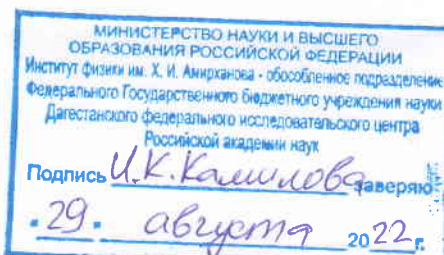 МИНИСТЕРСТВО НАУКИ И ВЫСШЕГО
ОБРАЗОВАНИЯ РОССИЙСКОЙ ФЕДЕРАЦИИ
Институт физики им. Х. И. Амирханова - обособленное подразделение
Федерального Государственного бюджетного учреждения науки
Дагестанского федерального исследовательского центра
Российской академии наук
Подпись И.К. Камилова заверяю
"29" августа 2022 г.